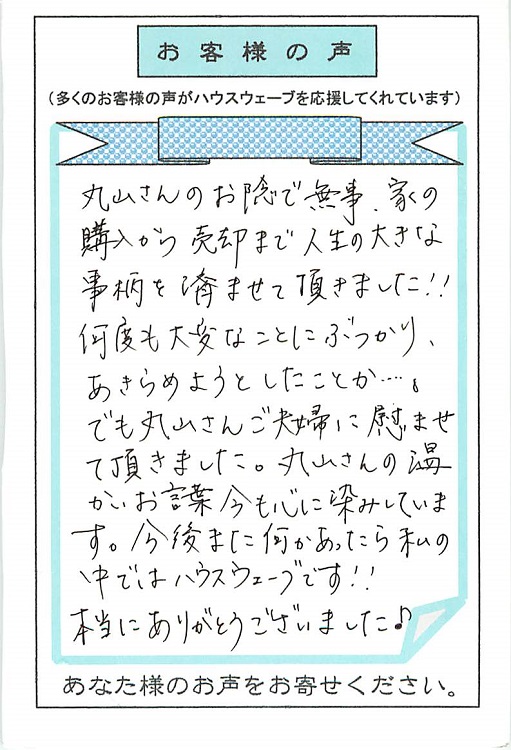 お客様の声
(多くのお客様の声がハウスウェーブを応援してくれています)
丸山さんのお陰で無事、家の
購入から売却まで人生の大きな
事柄を済ませて頂きました!!
何度も大変なことにぶつかり、
あきらめようとしたことか…。
でも丸山さんご夫婦に慰ませ
て頂きました。丸山さんの温
かいお言葉今も心に染みていま
す。今後また何かあったら私の
中ではハウスウェーブです!!
本当にありがとうございました♪
あなた様のお声をお寄せください。